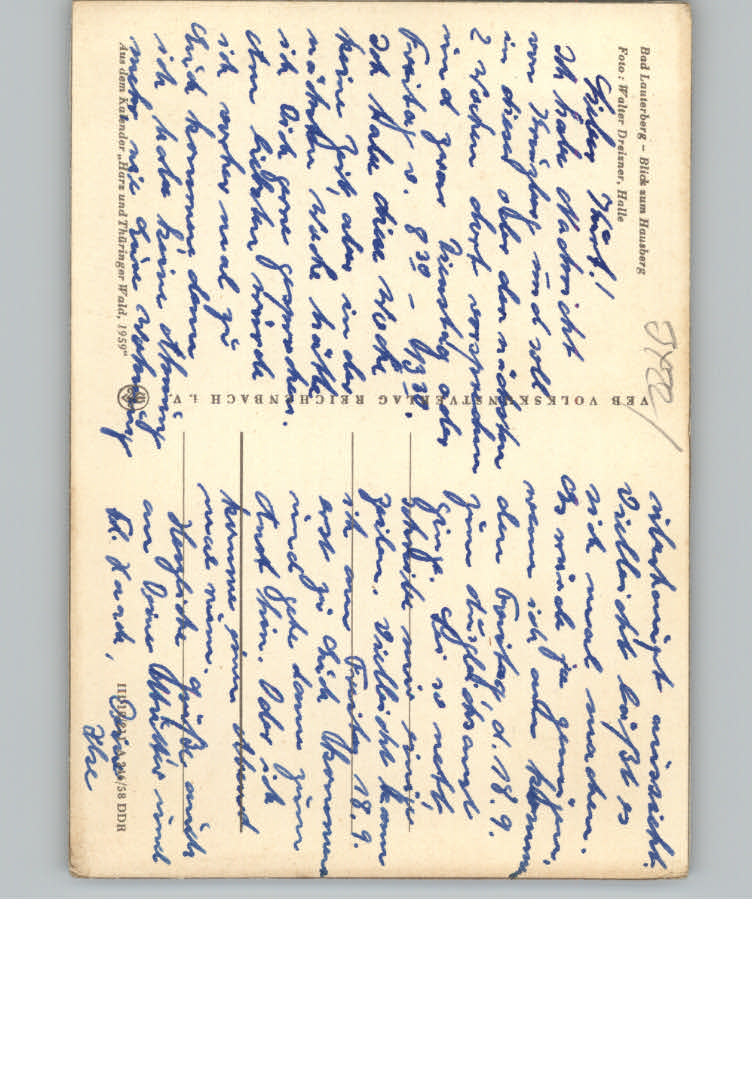 Bad Lauterberg – Blick zum Hausberg
Foto: Walter Dreizner, Halle
Lieber Kurt!
Ich habe Nachricht
von und soll
in dieser oder der nächsten
2 Wochen dort vorsprechen
und zwar Dienstag oder
Freitag v. 8³⁰ –
Ich habe diese Woche
keine Zeit, aber in der
nächsten Woche hätte
ich Dich gern gesprochen.
Am liebsten würde
ich vorher mal zu
Euch kommen, denn
ich habe keine Ahnung
mehr wie Deine Wohnung
Aus dem Kalender „Harz und Thüringer Wald, 1959"
VEB VOLKSKUNSTVERLAG REICHENBACH i. V.
überhaupt aussieht.
Vielleicht läßt es
sich mal machen.
Es würde ja genügen,
wenn ich am
den Freitag d. 18.9.
zum
ginge. Sei so nett
schreibe mir einige
Zeilen. Vielleicht kann
ich am Freitag 18.9.
erst zu Euch kommen
und gehe dann zum
Amt hin. Oder ich
komme einen Abend
mal rüber.
Herzliche Grüße auch
an Deine Mutter und
Deine
Ilse
58 DDR